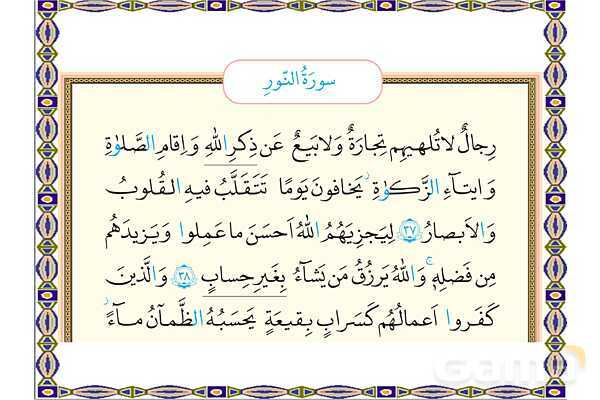 سورَةُ النّورِ
رِجالٌ لا تُلهيهِم تِجارَةٌ وَ لا بَيعٌ عَن ذِكرِ اللهِ وَ اِقامِ الصَّلوٰةِ
وَ ایتآءِ الزَّكوٰةِ يَخافونَ يَومًا تَتَقَلَّبُ فيهِ القُلوبُ
وَ الاَبصارُ ﴿٣٧﴾ لِيَجزِيَهُمُ اللهُ اَحسَنَ ما عَمِلوا وَ يَزيدَهُم
مِن فَضلِهٖ ۚ وَ اللهُ يَرزُقُ مَن يَشآءُ بِغَيرِ حِسابٍ ﴿٣٨﴾ وَ الَّذينَ
كَفَروا اَعمالُهُم كَسَرابٍ بِقيعَةٍ يَحسَبُهُ الظَّمآنُ مآءً
Gama